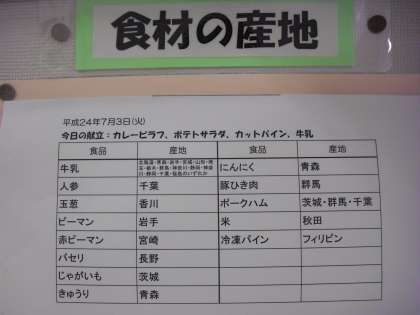 食材の産地
平成24年7月3日(火)
今日の献立：カレーピラフ、ポテトサラダ、カットパイン、牛乳
食品 産地 食品 産地
牛乳 にんにく 青森
人参 千葉 豚ひき肉 群馬
玉葱 香川 ポークハム 茨城・群馬・千葉
ピーマン 岩手 米 秋田
赤ピーマン 宮崎 冷凍パイン フィリピン
パセリ 長野
じゃがいも 茨城
きゅうり 青森